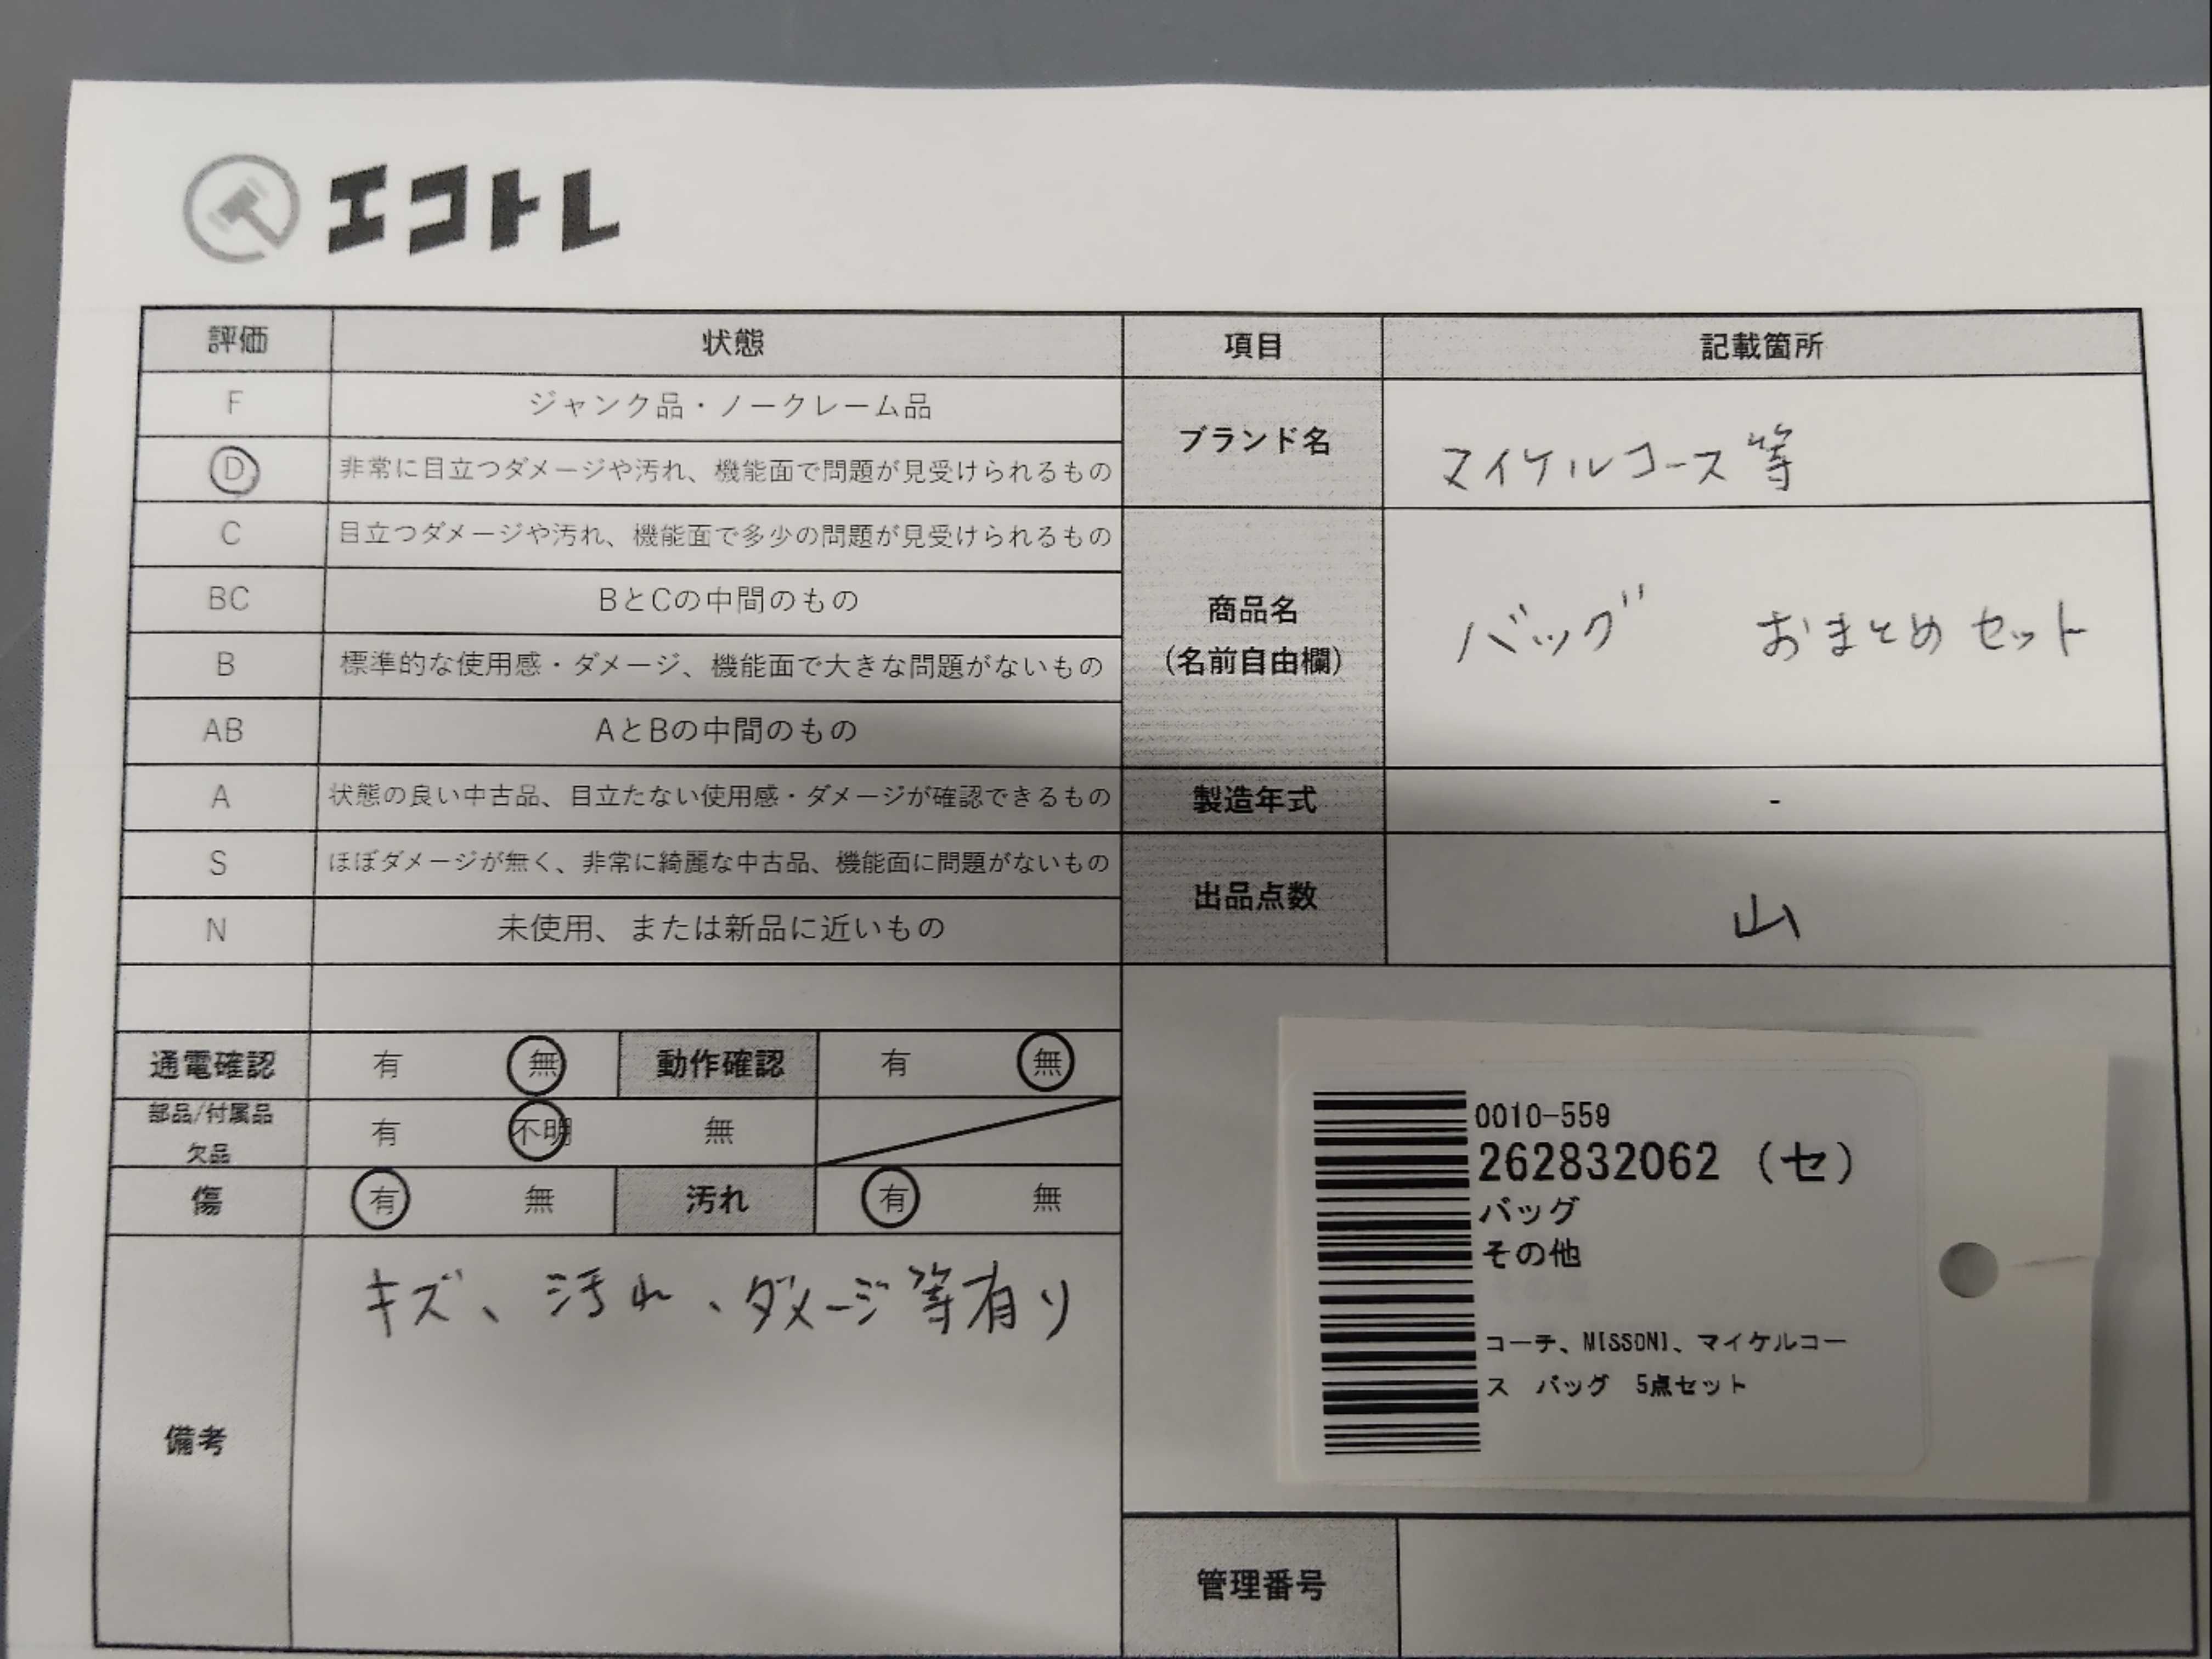 エコトレ
評価 状態 項目 記載箇所
F ジャンク品・ノークレーム品
D 非常に目立つダメージや汚れ、機能面で問題が見受けられるもの
C 目立つダメージや汚れ、機能面で多少の問題が見受けられるもの
BC BとCの中間のもの
B 標準的な使用感・ダメージ、機能面で大きな問題がないもの
AB AとBの中間のもの
A 状態の良い中古品、目立たない使用感・ダメージが確認できるもの
S ほぼダメージが無く、非常に綺麗な中古品、機能面に問題がないもの
N 未使用、または新品に近いもの
ブランド名 マイケルコース等
商品名
(名前自由欄) バッグ おまとめセット
製造年式 -
出品点数 山
通電確認 有 無 動作確認 有 無
部品/付属品
欠品 有 不明 無
傷 有 無 汚れ 有 無
備考 キズ、汚れ、ダメージ等有り
0010-559
262832062 (セ)
バッグ
その他
コーチ、MISSONI、マイケルコー
ス バッグ 5点セット
管理番号